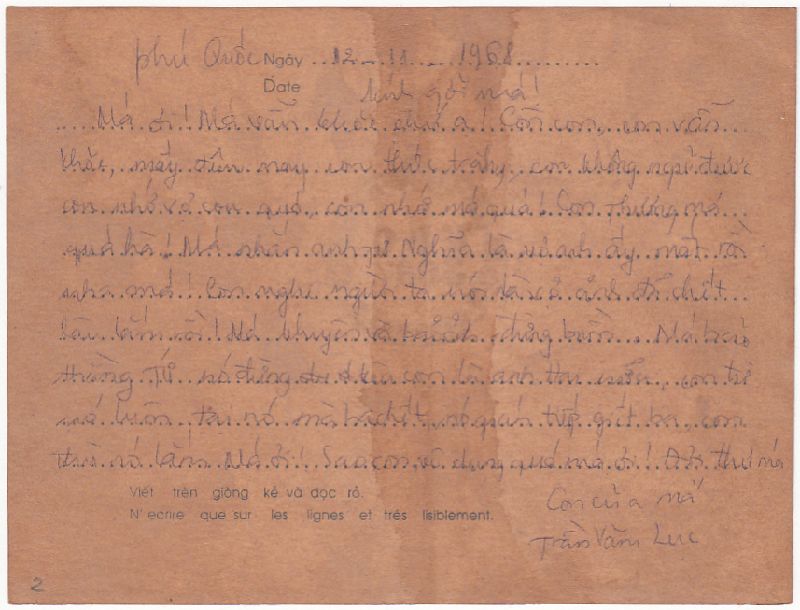 Phú Quốc Ngày ...12 - 11 - 1968.........
Date
kính gởi má!
Má ơi! Má vẫn khỏe chứ ạ! Còn con, con vẫn
khỏe, mấy đêm nay con thức trắng, con không ngủ được
con nhớ vợ con quá, con nhớ má quá! Con thương má
quá hà! Má nhắn anh Nghĩa là vợ anh ấy mất rồi
nha má! Con nghe người ta nói chết
lâu lắm rồi! Má khuyên đừng buồn... Má bảo
thằng Tư nó đừng con là anh con
nó luôn, tại nó mà ba chết, nó giết ba, con
thù nó lắm. Má ơi! Sao con vô dụng quá má ơi! thư má
Viết trên giòng kẻ và dọc rỏ.
N' ecrire que sur les lignes et très lisiblement.
Con của má
Trần Văn Lực
2